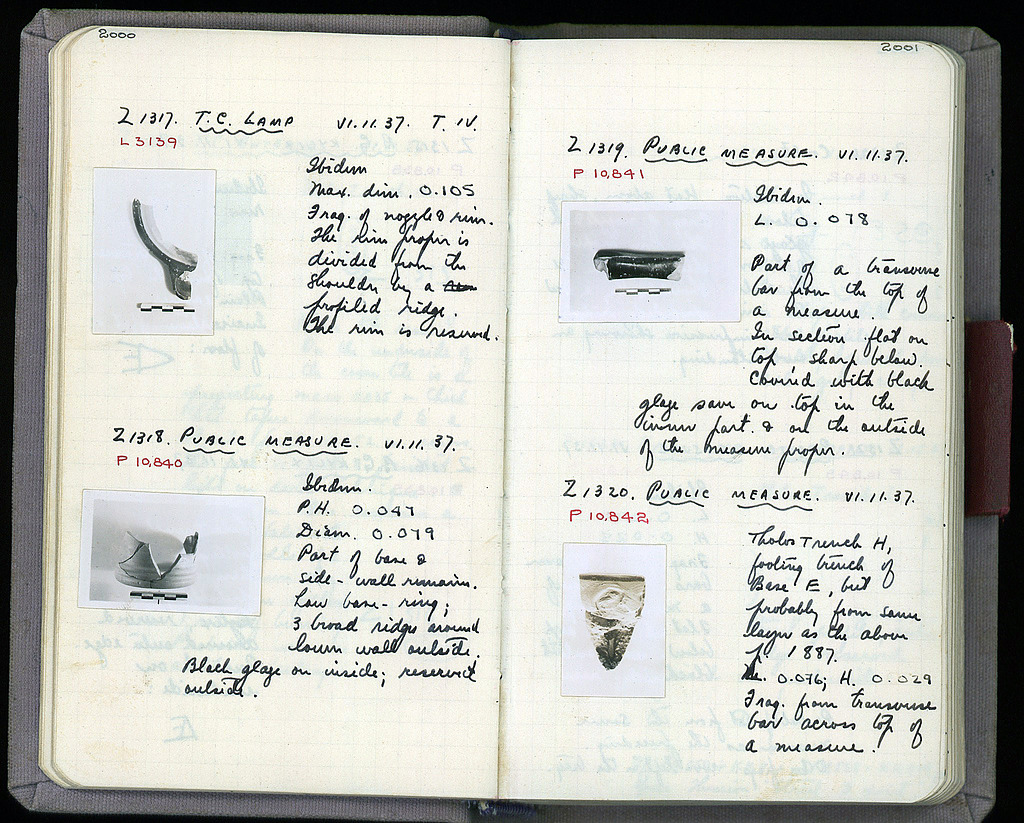 2000
Z 1317. T.C. LAMP VI.11.37. T. IV.
L 3139
Ibidem
Max. dim. 0.105
Frag. of nozzle & rim.
The rim proper is
divided from the
shoulder by a
profiled ridge.
The rim is reserved.
Z 1318. PUBLIC MEASURE. VI.11.37.
P 10,840
Ibidem.
P.H. 0.047
Diam. 0.079
Part of base &
side-wall remains.
Low base-ring;
3 broad ridges around
lower wall outside.
Black glaze on inside; reserved
outside.
2001
Z 1319. PUBLIC MEASURE. VI.11.37.
P 10,841
Ibidem.
L. 0.078
Part of a transverse
bar from the top of
a measure.
In section flat on
top sharp below.
Covered with black
glaze save on top in the
inner part & on the outside
of the measure proper.
Z 1320. PUBLIC MEASURE. VI.11.37.
P 10,842
Tholos Trench H,
footing trench of
Base E, but
probably from same
layer as the above
p. 1887.
0.076; H. 0.029
Frag. from transverse
bar across top of
a measure.